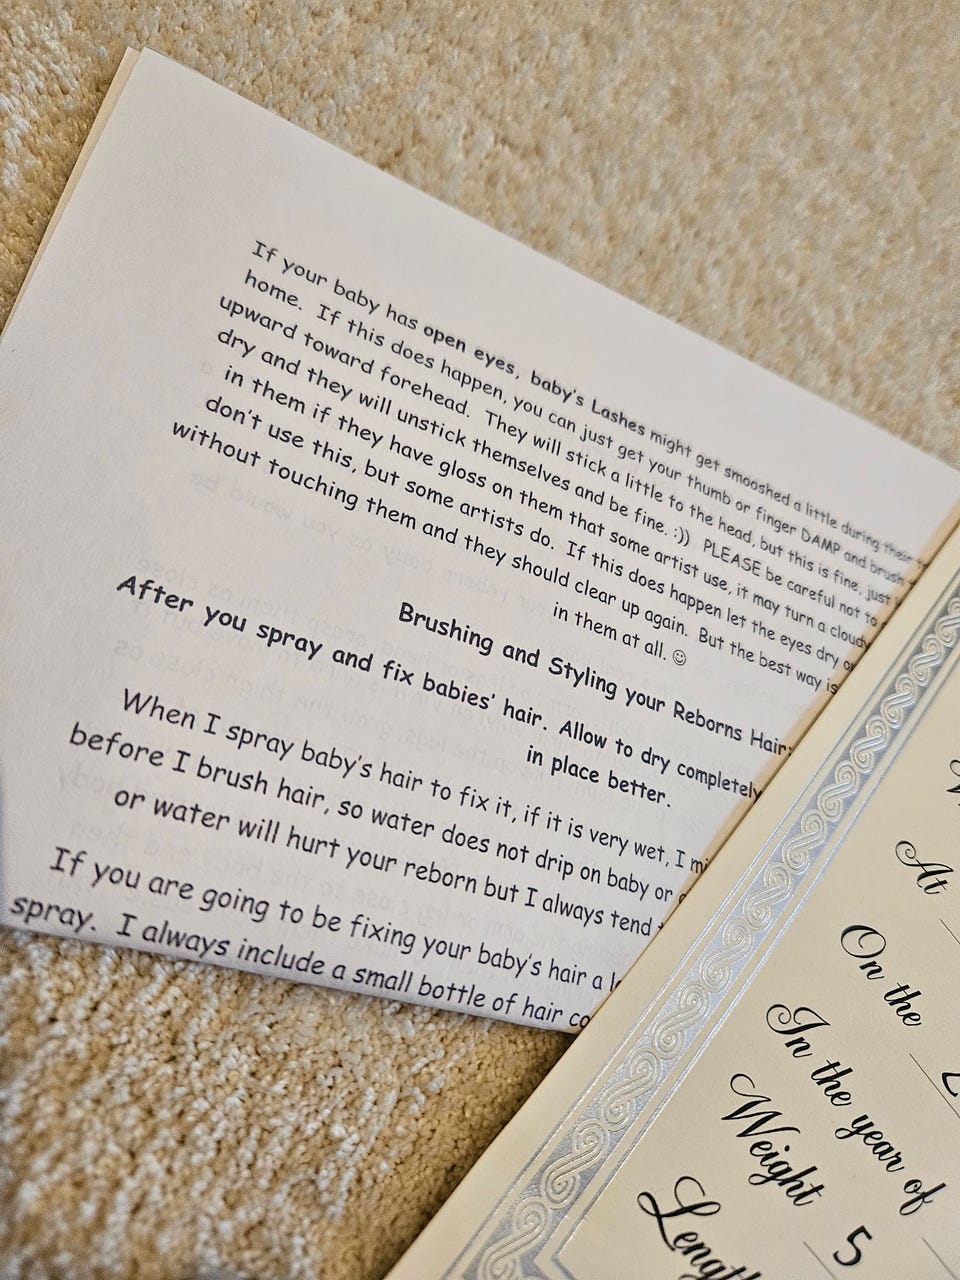 If your baby has open eyes, baby's Lashes might get smooshed a little during their
home. If this does happen, you can just get your thumb or finger DAMP and brush
upward toward forehead. They will stick a little to the head, but this is fine, just
dry and they will unstick themselves and be fine. :)) PLEASE be careful not to
in them if they have gloss on them that some artist use, it may turn a cloudy
don't use this, but some artists do. If this does happen let the eyes dry
without touching them and they should clear up again. But the best way is
in them at all. ☺
Brushing and Styling your Reborns Hair:
After you spray and fix babies' hair. Allow to dry completely
in place better.
When I spray baby's hair to fix it, if it is very wet, I
before I brush hair, so water does not drip on baby or
or water will hurt your reborn but I always tend
If you are going to be fixing your baby's hair a
spray. I always include a small bottle of hair
At
On the
In the year of
Weight 5
Length